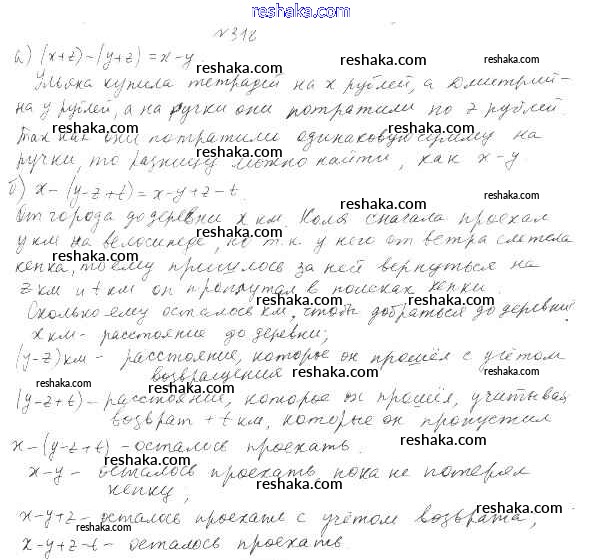 reshaka.com
№318
а) (x+z)-(y+z)=x-y
reshaka.com reshaka.com
купила тетрадей на x рублей, а Дмитрий -
на y рублей, а на ручки они потратили по z рублей.
reshaka.com reshaka.com
Так как они потратили одинаковую сумму на
reshaka.com
ручки, то разницу можно найти, как x-y.
reshaka.com reshaka.com
б) x-(y-z+t)=x-y+z-t.
reshaka.com
От города до деревни x км. Коля сначала проехал
reshaka.com reshaka.com
y км на велосипеде, но т.к. у него от ветра слетела
кепка, то ему пришлось за ней вернуться на
reshaka.com reshaka.com
z км и t км он в поисках кепки.
reshaka.com
Сколько ему осталось км, чтобы добраться до деревни
x км - расстояние до деревни;
reshaka.com
(y-z) км - расстояние, которое он прошёл с учётом
возвращения
reshaka.com reshaka.com
(y-z+t) - расстояние, которое он прошёл, учитывая
reshaka.com
возврат + t км, которые он пропустил
x-(y-z+t) - осталось проехать.
reshaka.com reshaka.com
x-y - осталось проехать, пока не потерял
кепку;
reshaka.com reshaka.com
x-y+z - осталось проехать с учётом возврата;
reshaka.com
x-y+z-t - осталось проехать.
reshaka.com